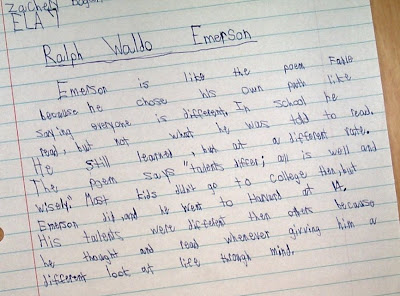 Zachery
ELA
Ralph Waldo Emerson
Emerson is like the poem Fable
because he chose his own path like
saying everyone is different. In school he
read, but not what he was told to read.
He still learned, but at a different rate.
The poem says "talents differ; all is well and
wisely." Most kids didn't go to college then, but
Emerson did, and he went to Harvard at 14.
His talents were different then others because
he thought and read whenever givving him a
different look at life through mind.